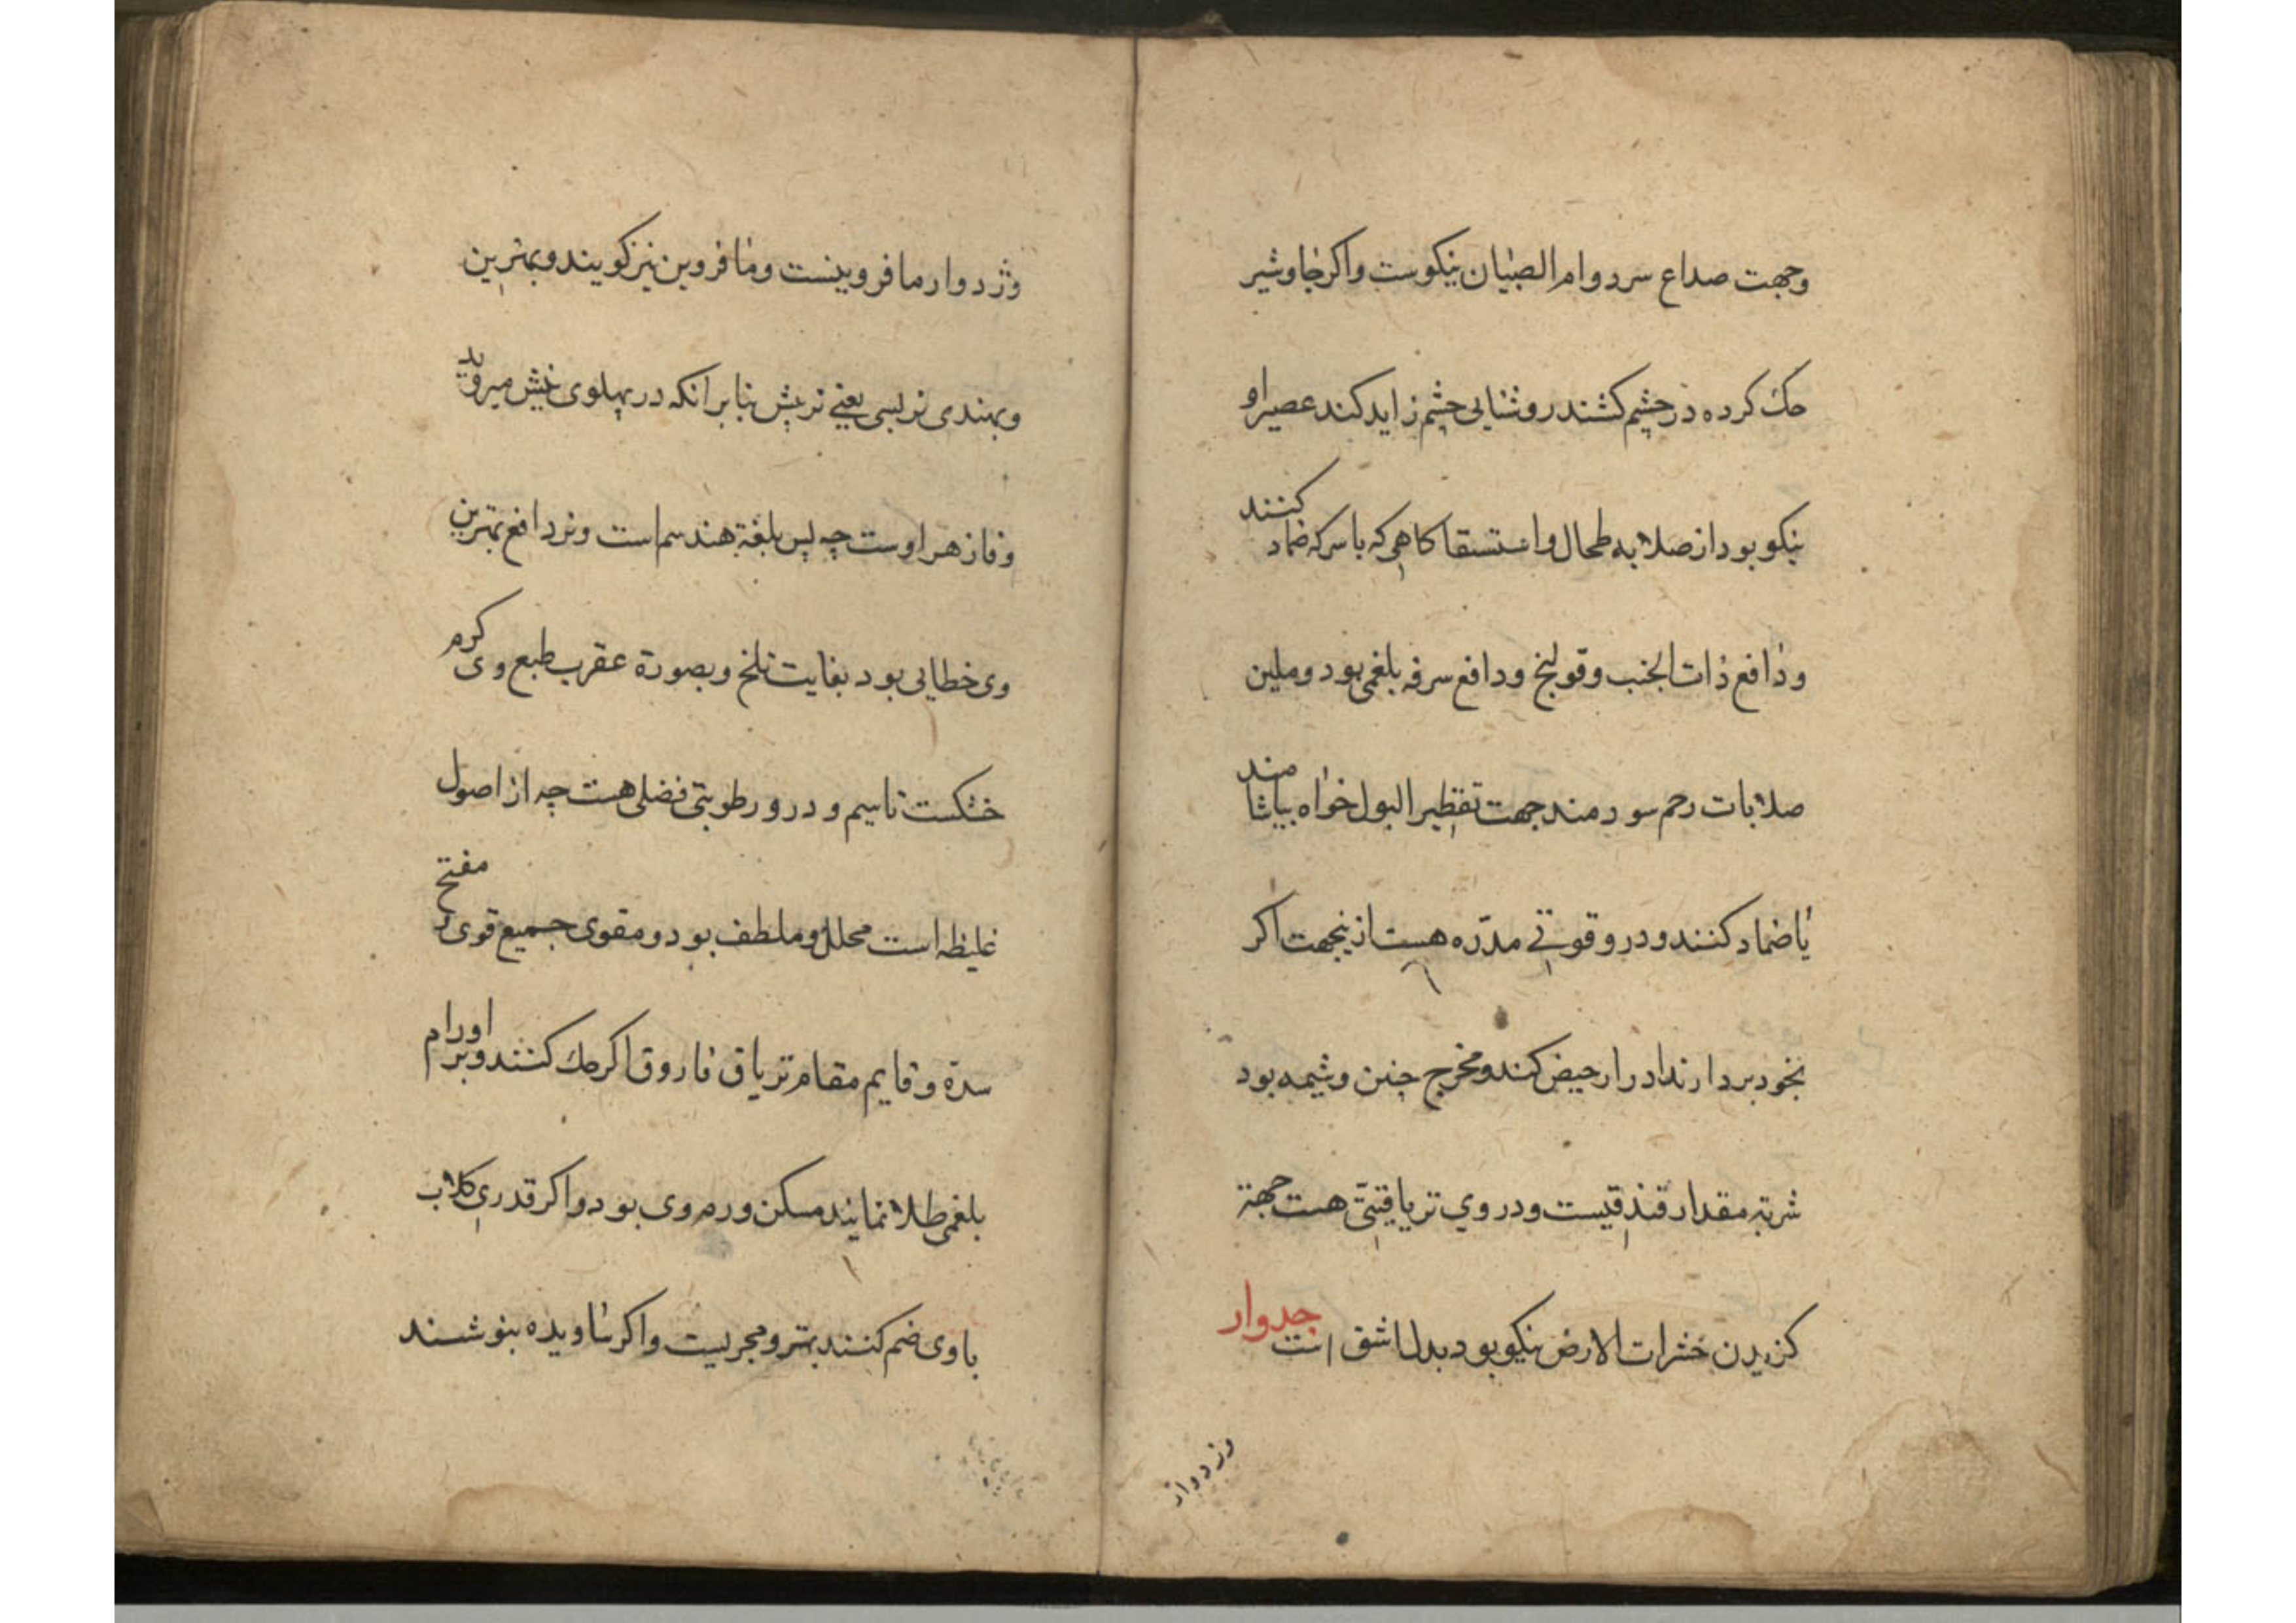 وجهت صداع سرد و ام الصبیان نیکوست واکر جاوشیر
حک کرده در چشم کشند روشنایی چشم زاید کند عصیر او
نیکو بود از صلابه طحال و استسقا کاهی که با سرکه ضماد کنند
و دافع ذات الجنب و قولنج و دافع سرفه بلغمی بود و ملین
صلابات رحم سودمند جهت تقطیر البول خواه بیاشامند
یا ضماد کنند و درو قوتی مدره هست ازینجهت اکر
بخود بردارند ادرار حیض کند و مخرج جنین و شیمه بود
شربة مقدار فندقیست و در وي تریاقیتی هست جهة
کزیدن حشرات الارض نیکو بود بدل اشق است جدوار
وژدوار
وژدوار ما فروینست و ما فروبن نیز کویند و بهترین
و بهندی نربسی یعنی نربش بنابر آنکه در پهلوی بیش میروید
و فازهر اوست چه بس بلغة هند سم است و نر دافع بهترین
وی خطایی بود بغایت تلخ و بصورة عقرب طبع وی کرم
خشکست تا سیم و درو رطوبتی فضلی هست چه از اصول
غلیظه است محلل و ملطف بود و مقوی جمیع قوی و مفتح
سدة و قایم مقام تریاق فاروق اکر حک کنند و بر اورام
بلغمی طلا نمایند مسکن ورم وی بود و اکر قدری کلاب
با وی ضم کنند بهتر و مجربست و اکر ساویده بنوشند